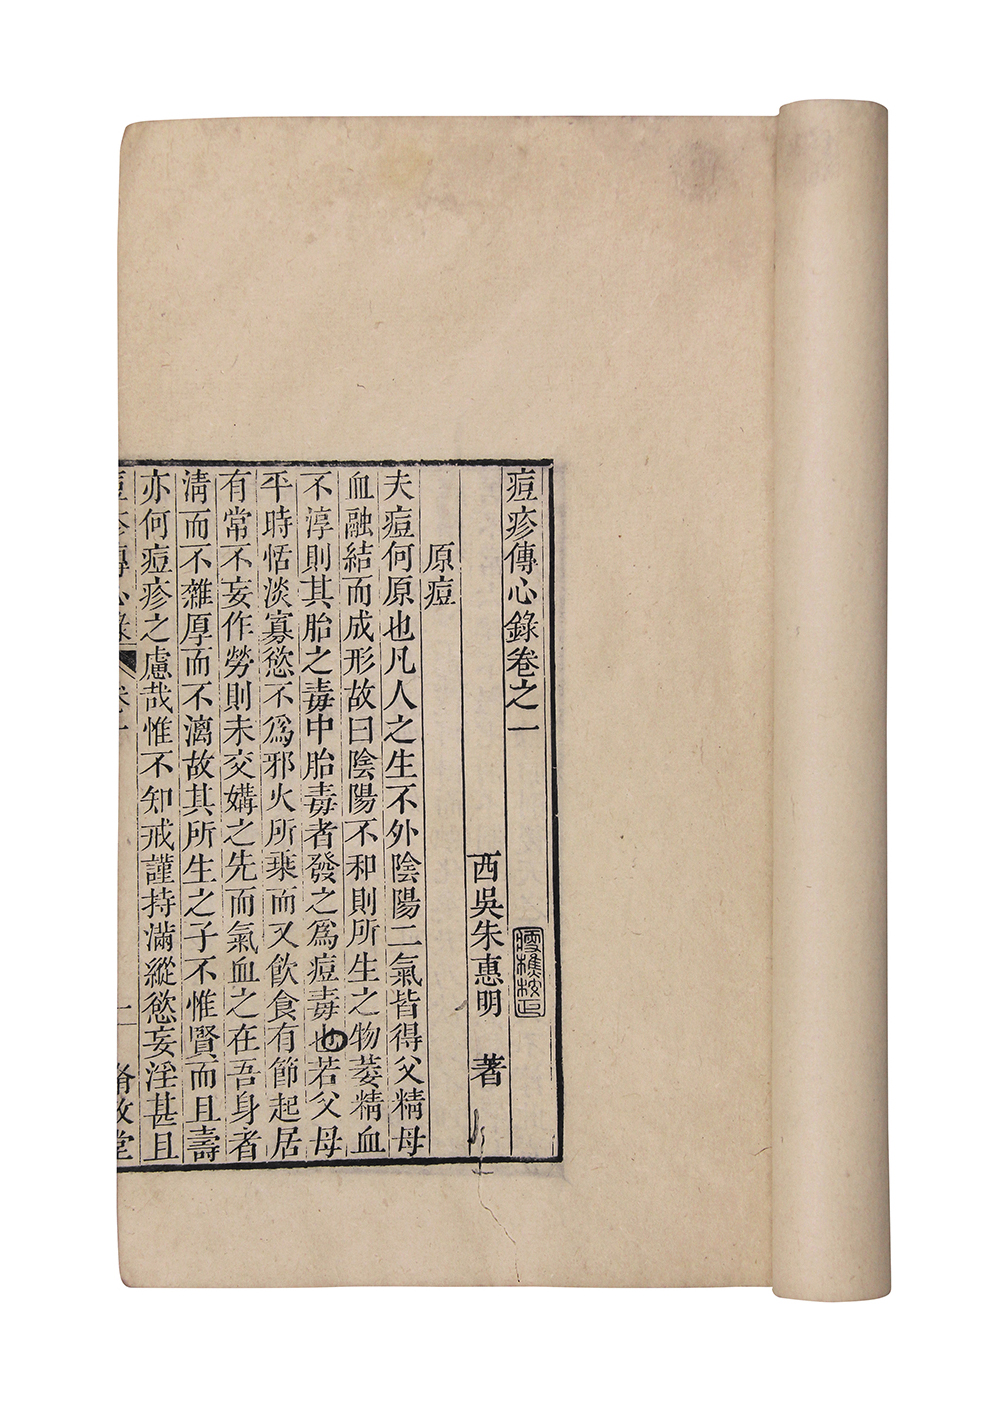 痘疹傳心錄卷之一
西吳朱惠明 著
原痘
夫痘何原也凡人之生不外陰陽二氣皆得父精母
血融結而成形故曰陰陽不和則所生之物萎精血
不淳則其胎之毒中胎毒者發之爲痘毒也若父母
平時恬淡寡慾不爲邪火所乘而又飲食有節起居
有常不妄作勞則未交媾之先而氣血之在吾身者
清而不雜厚而不漓故其所生之子不惟賢而且壽
亦何痘疹之慮哉惟不知戒謹持滿縱慾妄淫甚且
痘疹傳心錄 卷一 一 脩敬堂